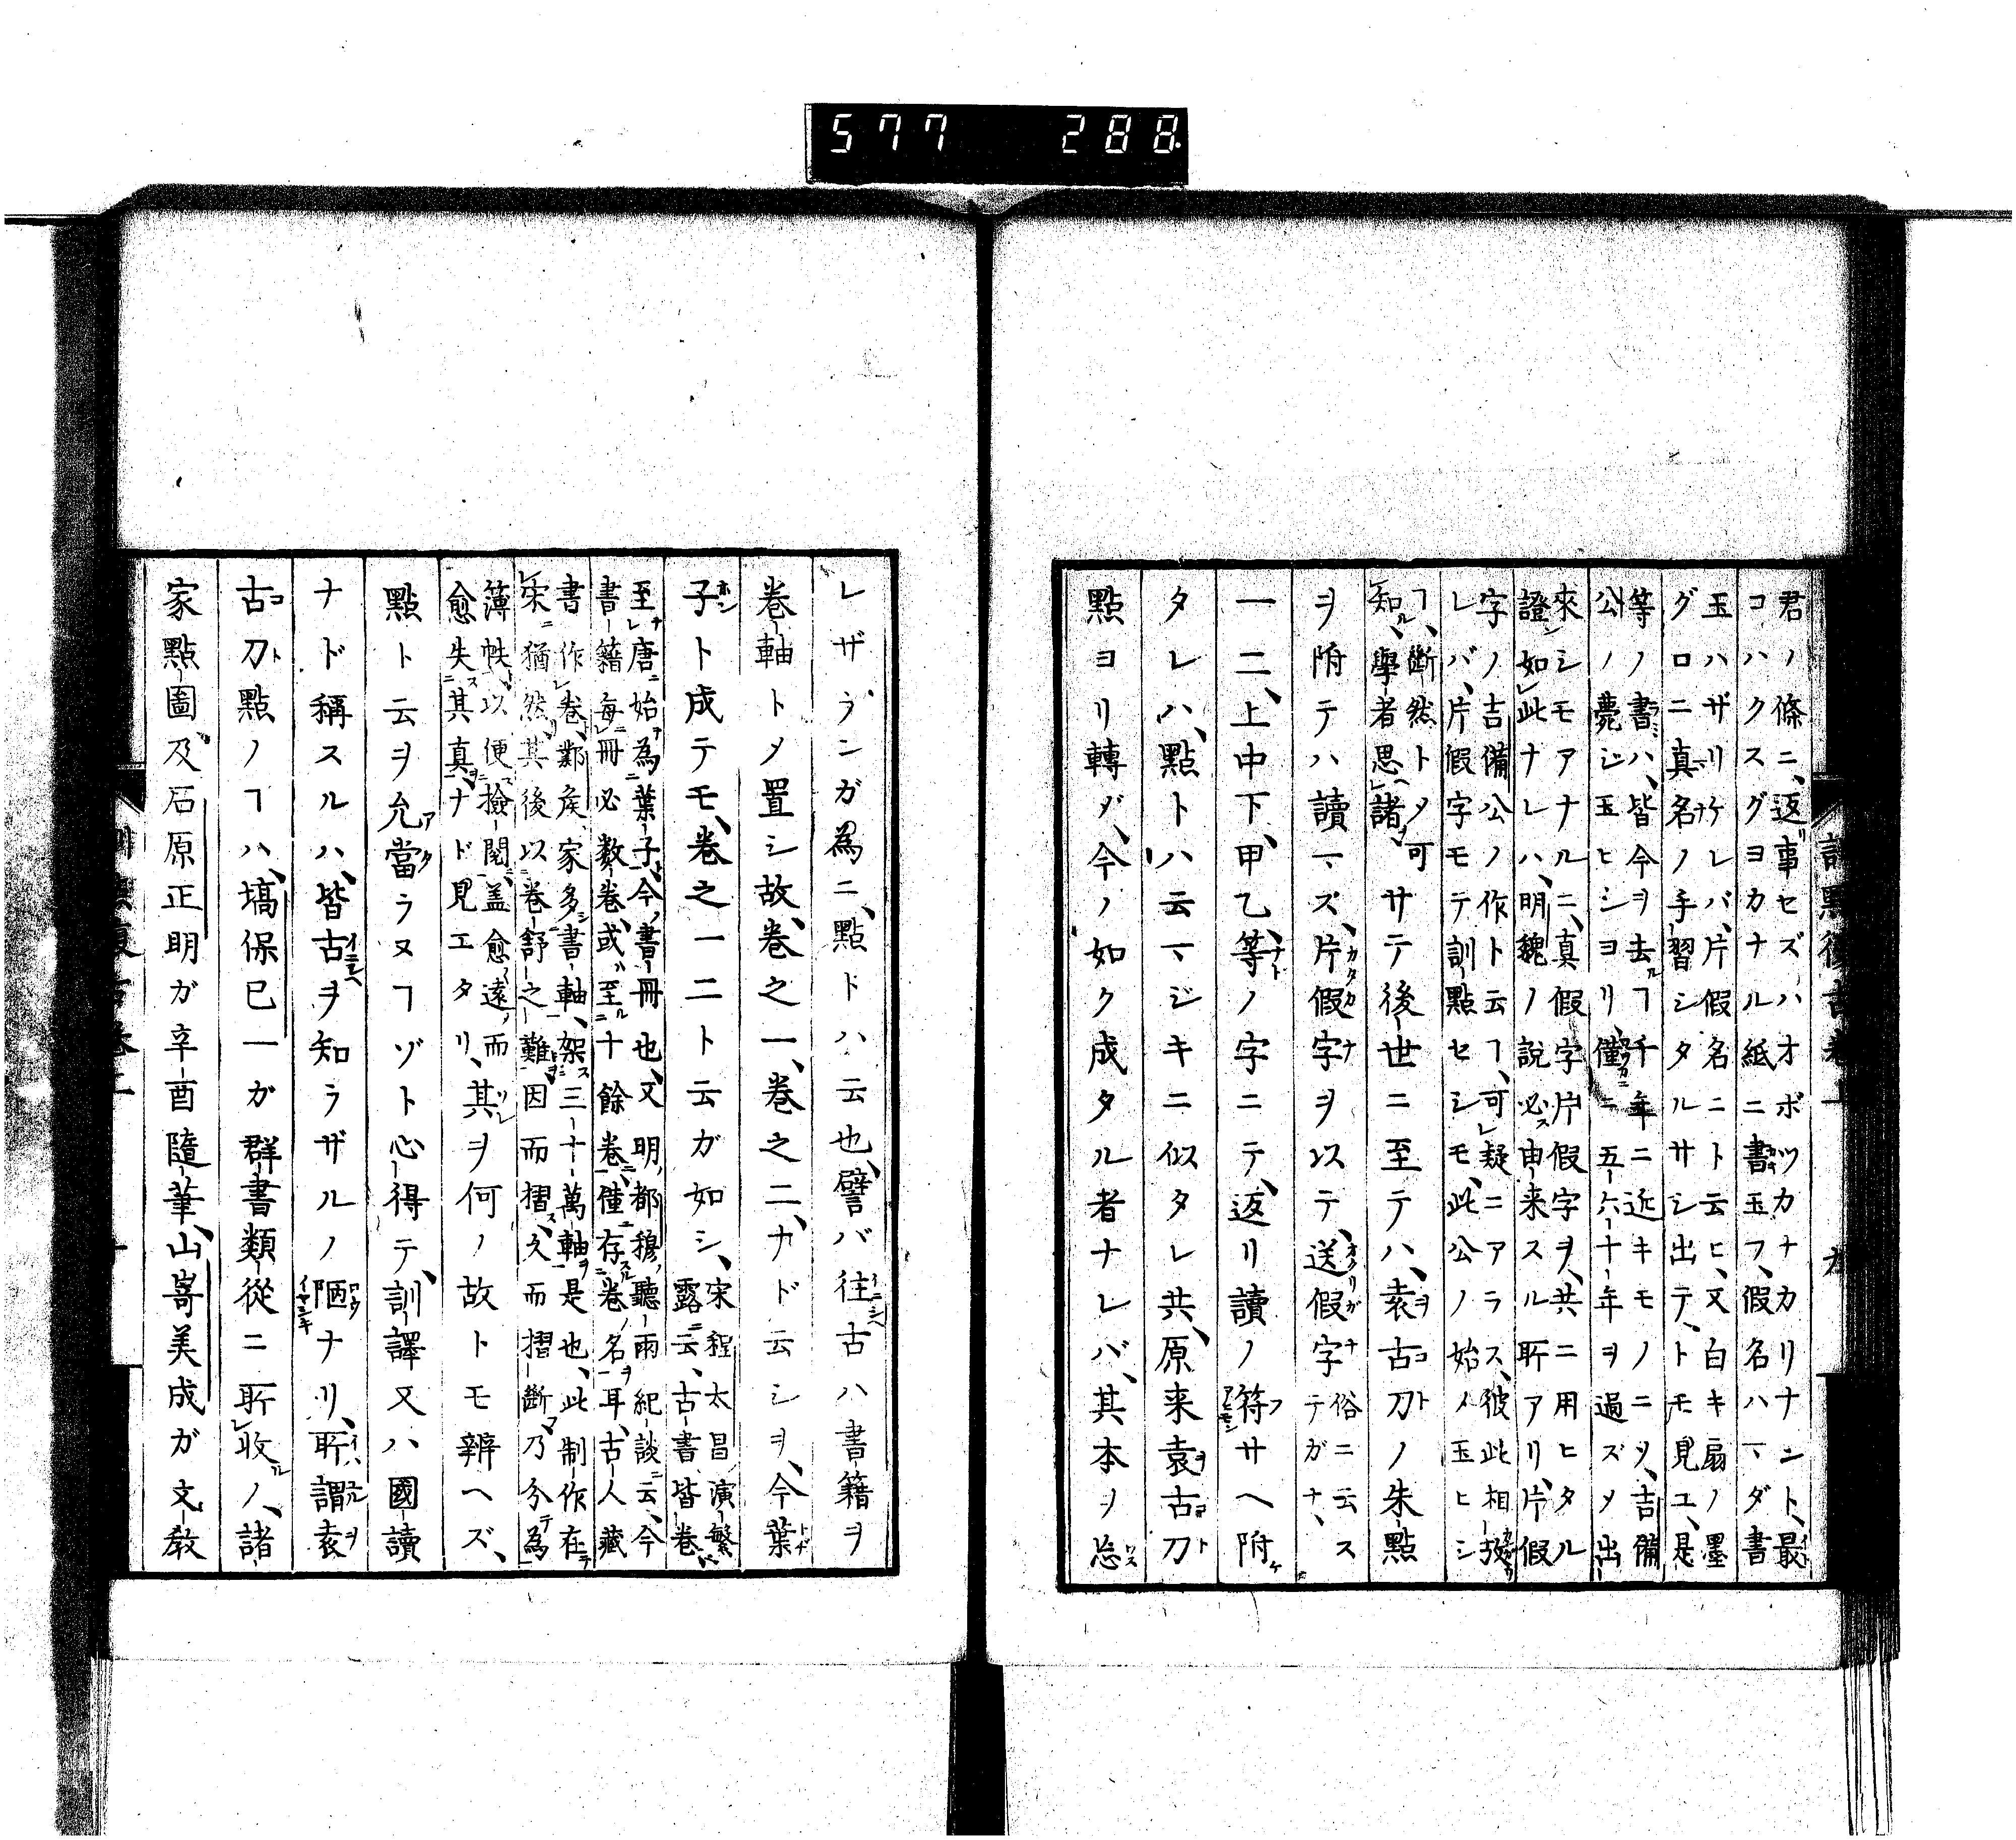 577 288
君ノ條ニ、返事セズハオボツカナカリナント、最
コハクスグヨカナル紙ニ書玉フ、假名ハマダ書
玉ハザリケレバ、片假名ニト云ヒ、又白キ扇ノ墨
グロニ真名ノ手習シタルサシ出テ、トモ見ユ、是
等ノ書ハ、皆今ヲ去ルヿ千年ニ近キモノニヿ、吉備
公ノ薨ジ玉ヒシヨリ、僅ニ五六十年ヲ過ズメ出
來シモアナルニ、真假字片假字ヲ、共ニ用ヒタル
證如レ此ナレハ、明魏ノ說必由来スル所アリ、片假
字ノ吉備公ノ作ト云ヿ、可レ疑ニアラス、彼此相放
レバ、片假字モテ訓點セシモ、此公ノ始メ玉ヒシ
ヿ、斷然トメ可
レ知ル、學者思レ諸ヲ
サテ後世ニ至テハ、袁古刀ノ朱點
ヲ附テハ讀マズ、片假字ヲ以テ、送假字
俗ニ云ス
テガナ、
一二、上中下、甲乙、等ノ字ニテ、返リ讀ノ符サヘ附
タレハ、點トハ云マジキニ似タレ共、原来袁古刀
點ヨリ轉ジ、今ノ如ク成タル者ナレバ、其本ヲ忘
レザランガ為ニ、點ドハ云也、譬バ往古ハ書籍ヲ
卷軸トメ置シ故、卷之一、卷之二、ナド云シヲ、今葉
子ト成テモ、卷之一二ト云ガ如シ、
宋程太昌演繁
露ニ云、古書皆卷
至レ唐ニ始ヲ為ニ葉子、今ノ書冊也、又明ノ都穆ノ聽雨紀談ニ云、今
書籍每レ冊必數卷、或ハ至ニ十餘卷ニ、僅ニ存スル卷ノ名ヲ耳、古人藏
書作レ卷、鄴矦家多書軸、架三十萬軸是也、此制作在
レ宋ニ猶然、其後以卷舒之難因而摺、久而摺斷乃分為
薄帙、以便撿閱、盖愈遠而
愈失其真、ナド見エタリ、
其ヲ何ノ故トモ辨ヘズ、
點ト云ヲ允當ラヌヿゾト心得テ、訓譯又ハ國讀
ナド稱スルハ、皆古ヲ知ラザルノ陋ナリ、所謂袁
古刀點ノヿハ、塙保己一ガ群書類從ニ所レ收ノ、諸
家點圖、及石原正明ガ辛酉隨筆、山嵜美成ガ文敎